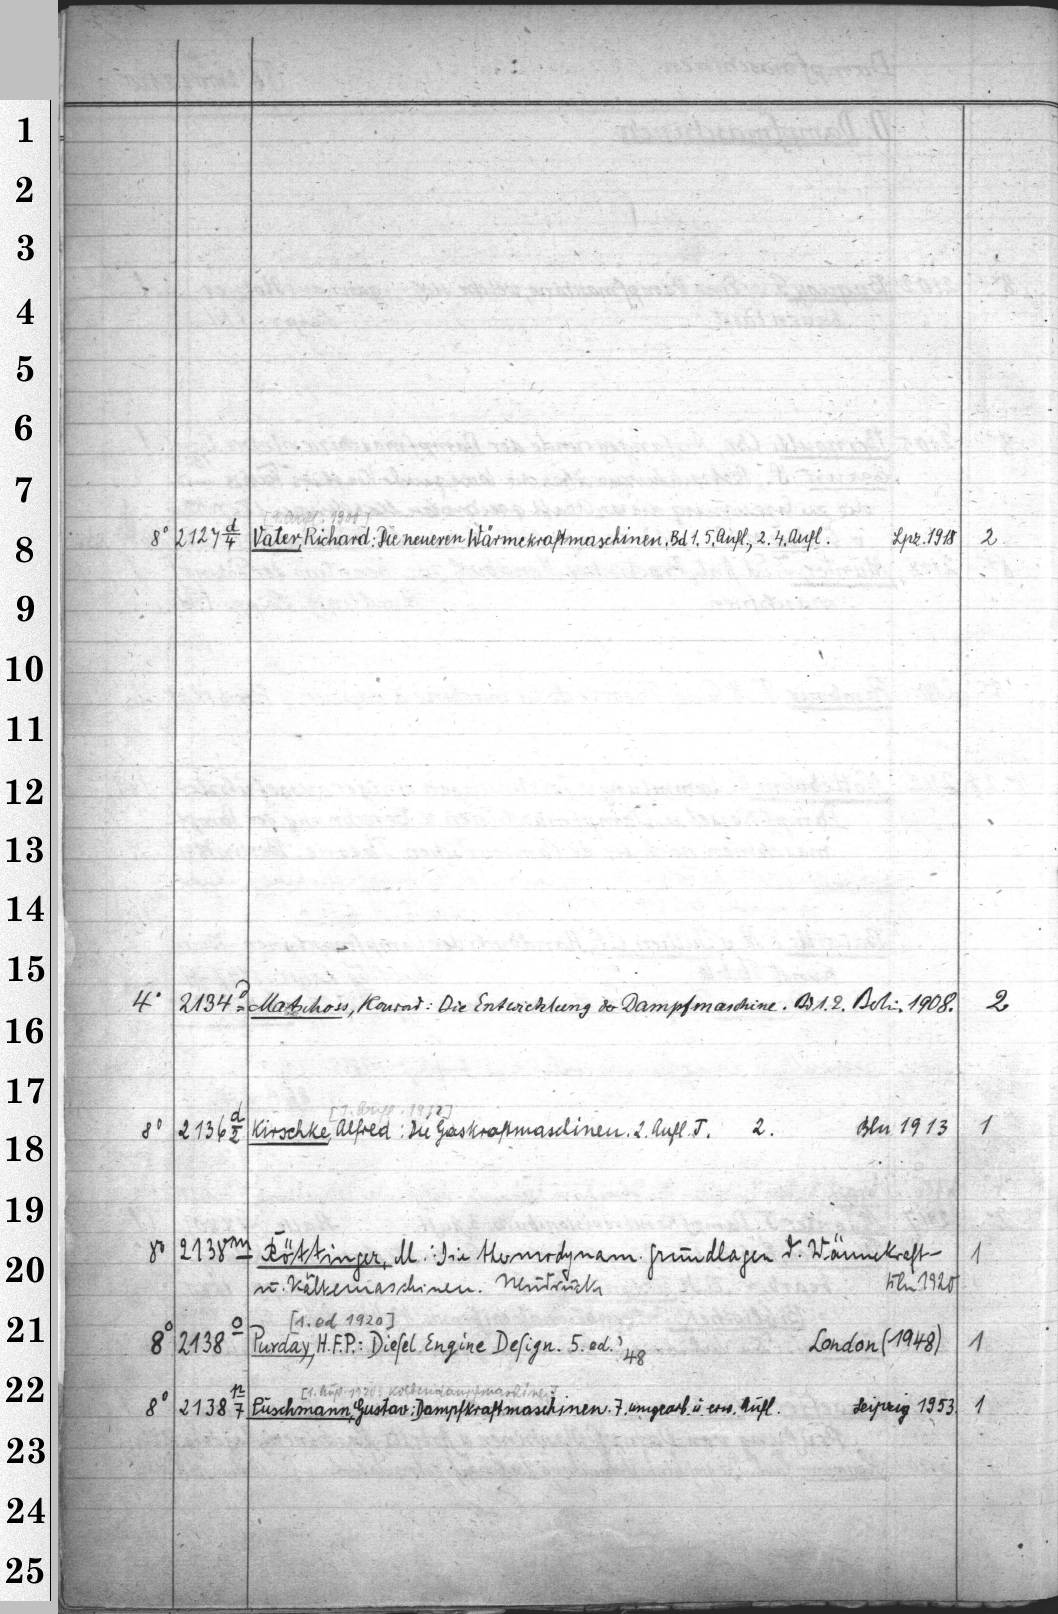 1
2
3
4
5
6
7
[1. Aufl. 1901]
8 8° 2127 d/4 Vater, Richard: Die neueren Wärmekraftmaschinen. Bd 1. 5. Aufl., 2. 4. Aufl. Lpz. 1918 2
9
10
11
12
13
14
15
4° 2134 Matschoss, Konrad: Die Entwicklung der Dampfmaschine. Bd 1. 2. Berlin, 1908. 2
16
17
[1. Aufl. 1912]
8° 2136 d/2 Kirschke, Alfred: Die Gaskraftmaschinen. 2. Aufl. T. 2. Bln 1913 1
18
19
8° 2138 m Röttinger, M.: Die thermodynam. Grundlagen d. Wärmekraft- 1
20 u. Kältemaschinen. Neudruck Bln 1920
21 [1. ed 1920]
8° 2138 o Purday, H.F.P.: Diesel Engine Design. 5. ed. 48 London (1948) 1
22 [1. Aufl. 1920: Kolbendampfmaschinen]
8° 2138 n/7 Puschmann, Gustav: Dampfkraftmaschinen. 7. umgearb. u. erw. Aufl. Leipzig 1953. 1
23
24
25